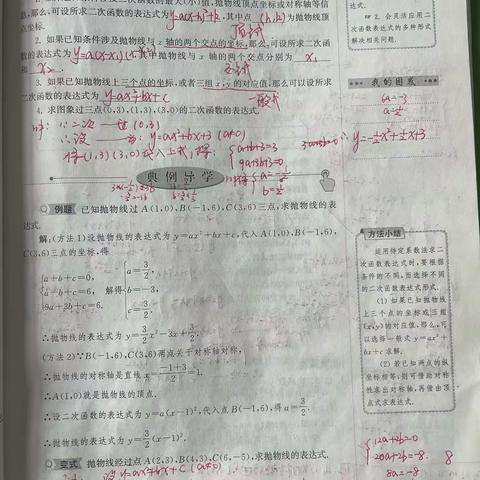 想,那么,可设所求二次函数的表达式为y=a(x-h)²+k,其中点(h,k)为抛物线顶
点坐标. 顶点式
2. 如果已知条件涉及抛物线与x轴的两个交点的坐标,那么,可设所求二次函
数的表达式为y=a(x-x₁)(x-x₂),其中抛物线与x轴的两个交点分别为 x₁
和 x₂. 交点式
3. 如果已知抛物线上三个点的坐标,或者三组x,y的对应值,那么可以设所求
二次函数的表达式为y=ax²+bx+c 一般式
4. 求图象过三点(0,3),(1,3),(3,0)的二次函数的表达式.
∵二次 过(0,3)
∴设 为:y=ax²+bx+3 (a≠0)
将(1,3)(3,0)代入上式,得:
a+b+3=3
9a+3b+3=0
a=-1/2
b=1/2
∴y=-1/2x²+1/2x+3
典例导学
例题 已知抛物线过A(1,0),B(-1,6),C(3,6)三点,求抛物线的表
达式.
解:(方法1)设抛物线的表达式为y=ax²+bx+c,代入A(1,0),B(-1,6),
C(3,6)三点的坐标,得
a+b+c=0,
a-b+c=6,
9a+3b+c=6.
解得
a=3/2,
b=-3,
c=3/2.
∴抛物线的表达式为y=3/2x²-3x+3/2.
(方法2)∵B(-1,6),C(3,6)两点关于对称轴对称,
∴抛物线的对称轴是直线x=(-1+3)/2=1.
∴A(1,0)就是抛物线的顶点.
∴设二次函数的表达式为y=a(x-1)²,代入点B(-1,6),得a=3/2.
∴抛物线的表达式为y=3/2(x-1)².
变式 抛物线经过点A(2,3),B(4,3),C(6,-5),求抛物线的表达式.
设 y=ax²+bx+c (a≠0)
2. 会灵活应用二
次函数表达式的多种形式
解决相关问题.
我的困惑
6a=-3
a=-1/2
方法小结
运用待定系数法求二
次函数表达式时,要根据
条件的不同,而选择不同
的二次函数表达形式.
(1)如果已知抛物线
上三个点的坐标或三组
(x,y)的对应值,那么,可
以选择一般式y=ax²+
bx+c求解.
(2)若已知两点的纵
坐标相等,则可借助对称
性求出对称轴,再借助顶
点式求表达式.
12a+2b=0
20a+2b=-8
8a=-8
8